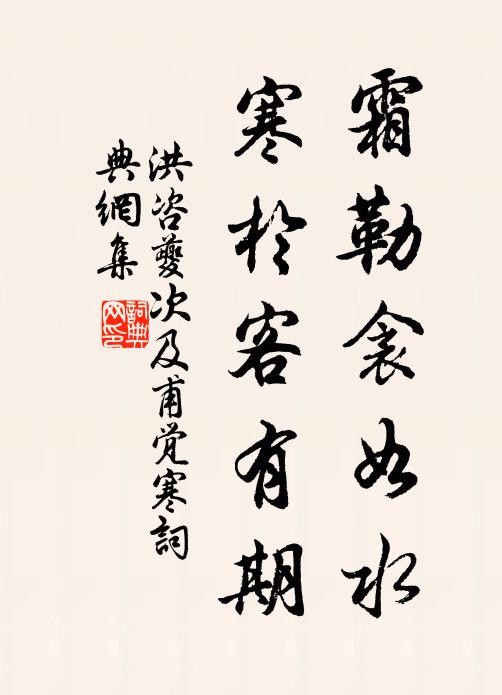 霜勒衾如水
寒於客有期
洪咨夔次及甫觉寒詞
典網集
詞典
网印